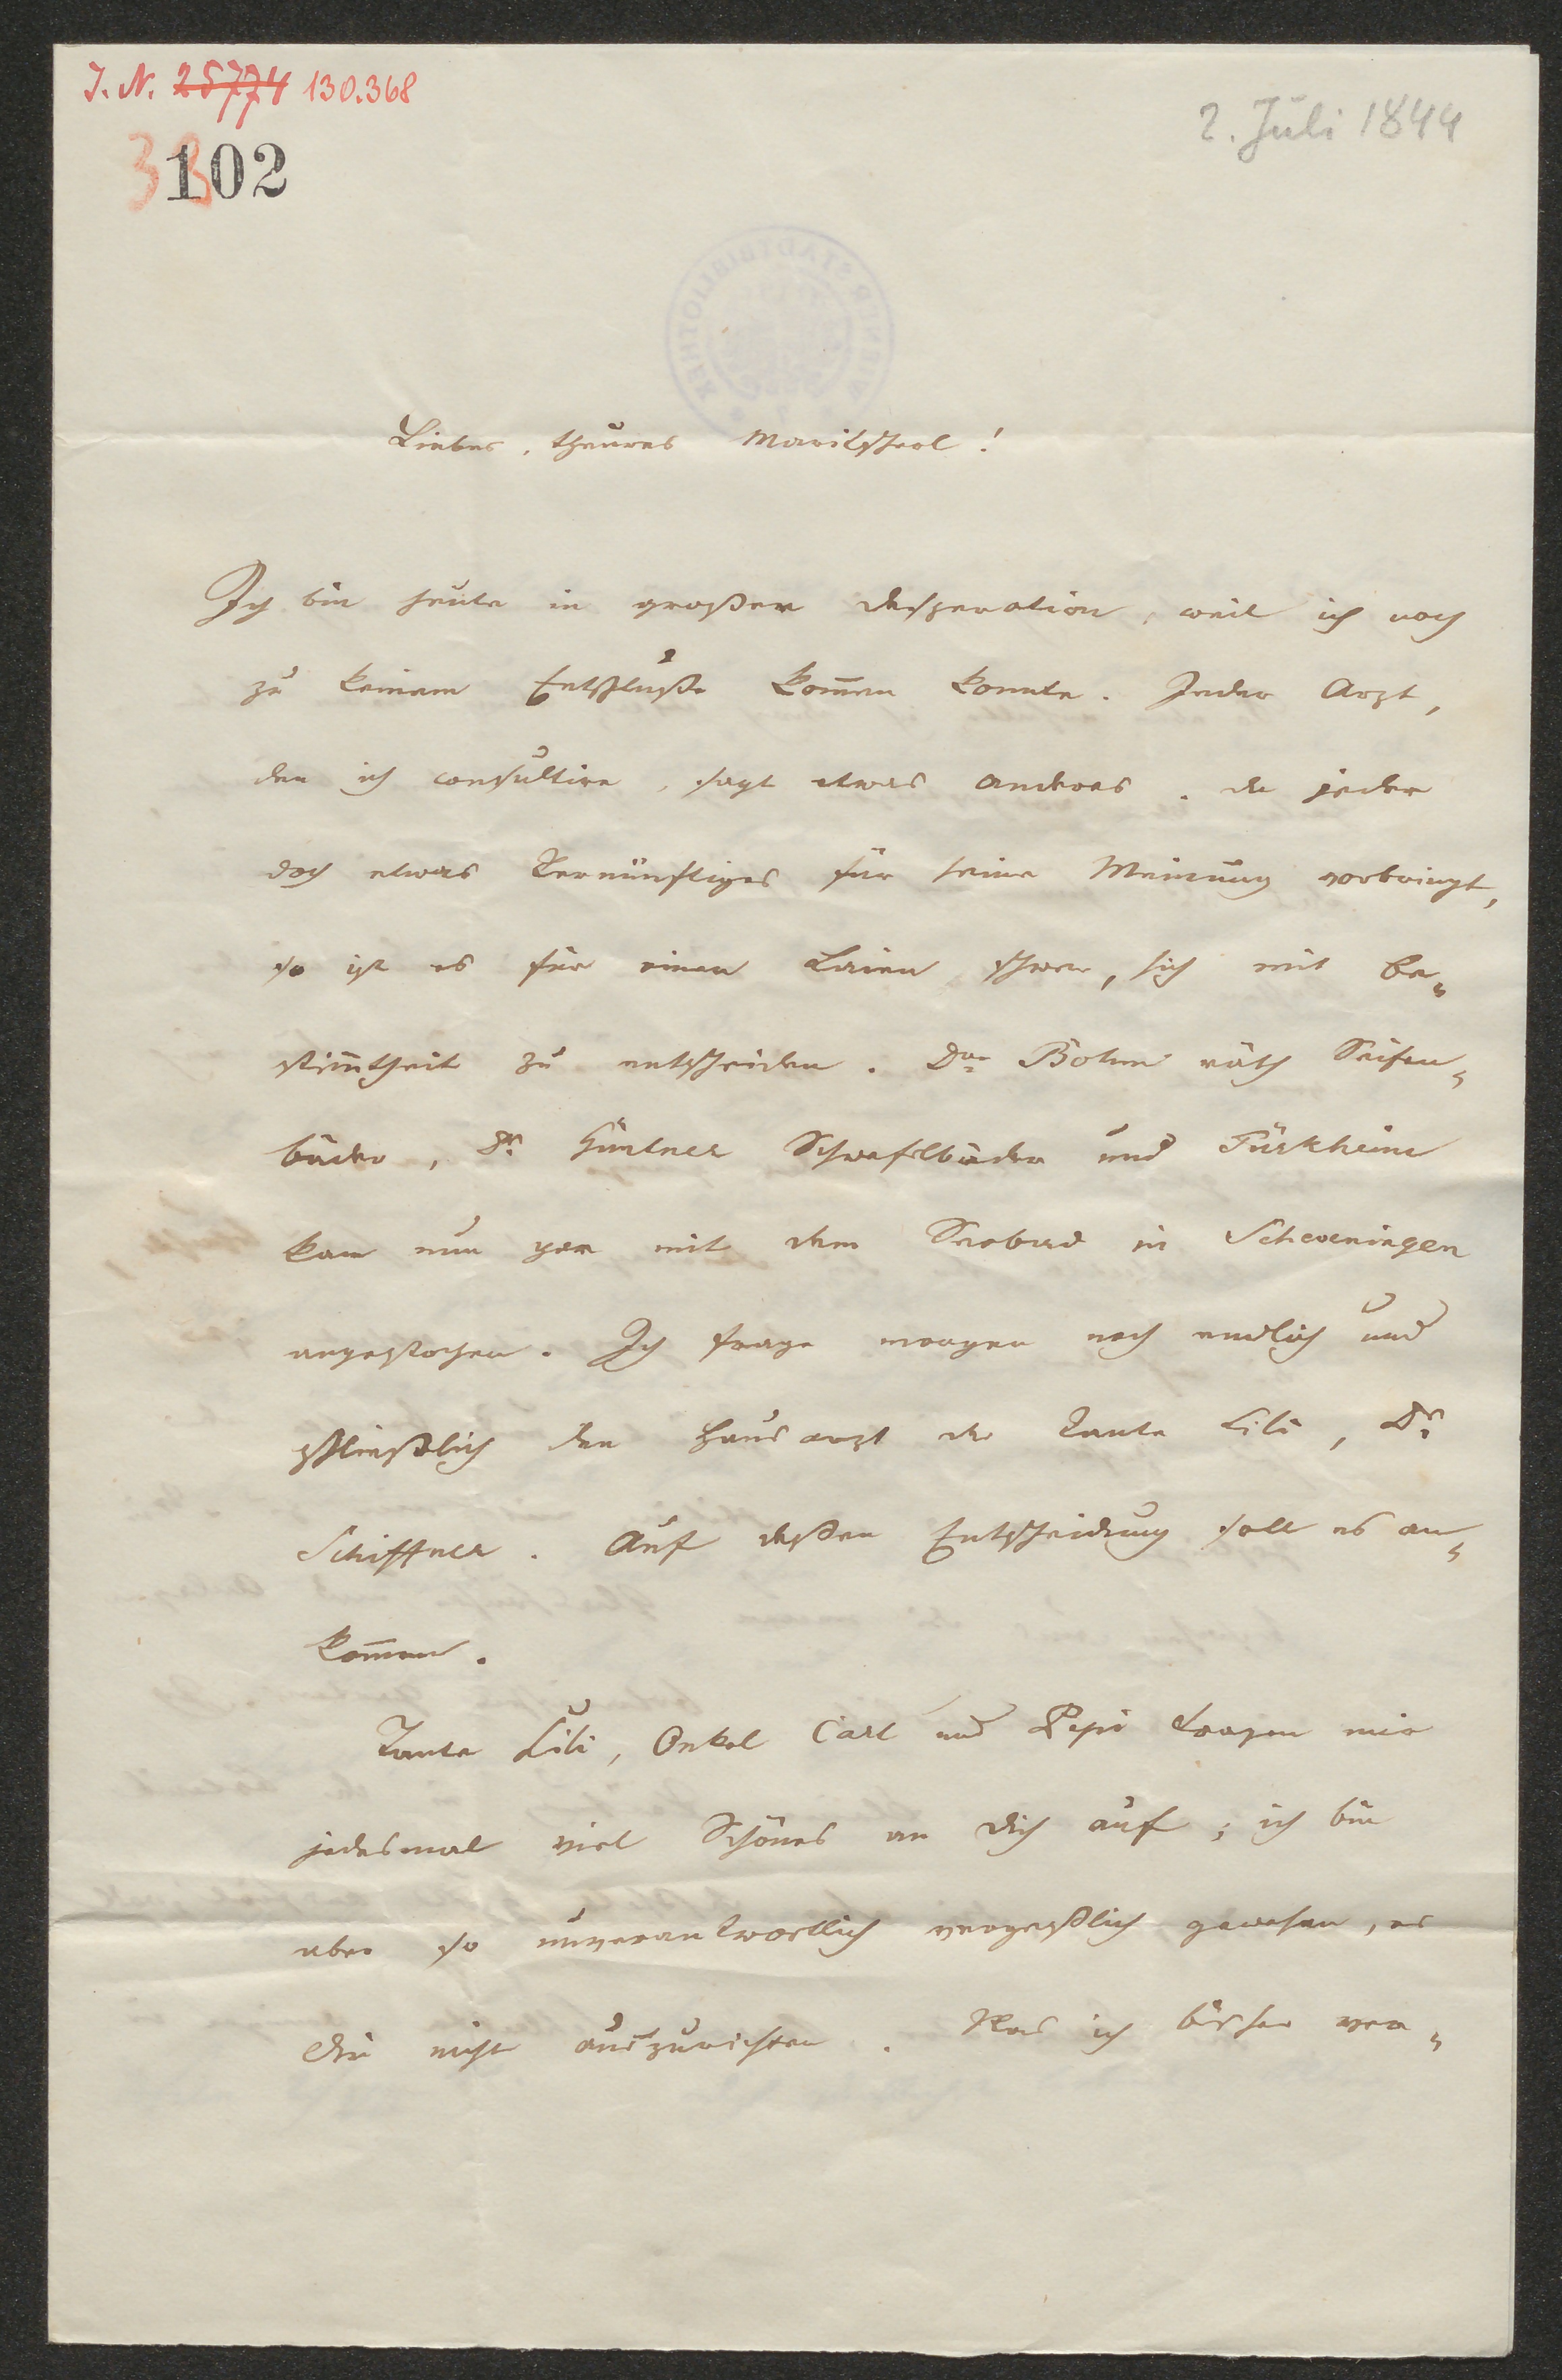 J. N. 25774 130.368
2. Juli 1844
33
102
WIENER STADTBIBLIOTHEK
Liebes, theures Maritscherl!
Ich bin heute in großer Desperation, weil ich noch
zu keinem Entschluße kom̄en konnte. Jeder Arzt,
den ich consultire, sagt etwas anderes. da jeder
doch etwas Vernünftiges für seine Meinung vorbringt,
so ist es für einen Laien schwer, sich mit be-
stim̄theit zu entscheiden. Dor Böhm räth Seifen-
bäder, Dr. Güntner Schwefelbäder und Türkheim
kam nun gar mit dem Seebad in Scheveningen
angestochen. Ich frage morgen noch endlich und
schließlich den Hausarzt der Tante Lili, Dr.
Schiffner. Auf deßen Entscheidung soll es an-
kom̄en.
Tante Lili, Onkel Carl und Pepi tragen mir
jedesmal viel Schönes an dich auf; ich bin
aber so unverantwortlich vergeßlich gewesen, es
dir nicht auszurichten. Was ich bisher ver-